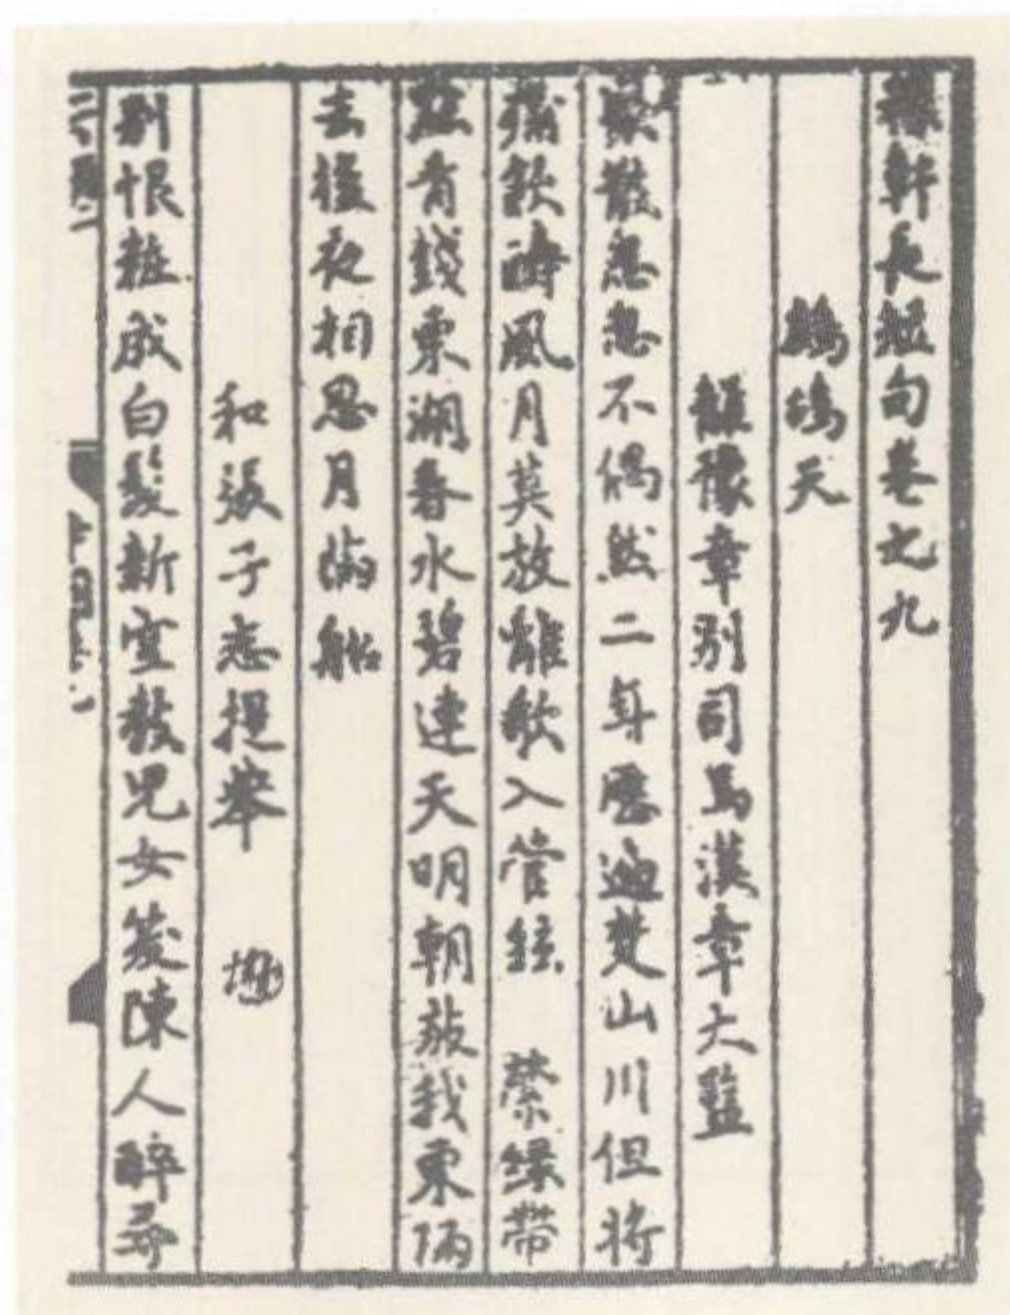 稼軒長短句卷之九
鷓鴣天
離豫章別司馬漢章大監
聚散怱怱不偶然二年歷遍楚山川但將
痛飲酬風月莫放離歌入管絃 縈緑帶
點青錢東湖春水碧連天明朝放我東歸
去後夜相思月滿船
和張子志提舉
別恨粧成白髮新空教兒女笑陳人醉尋